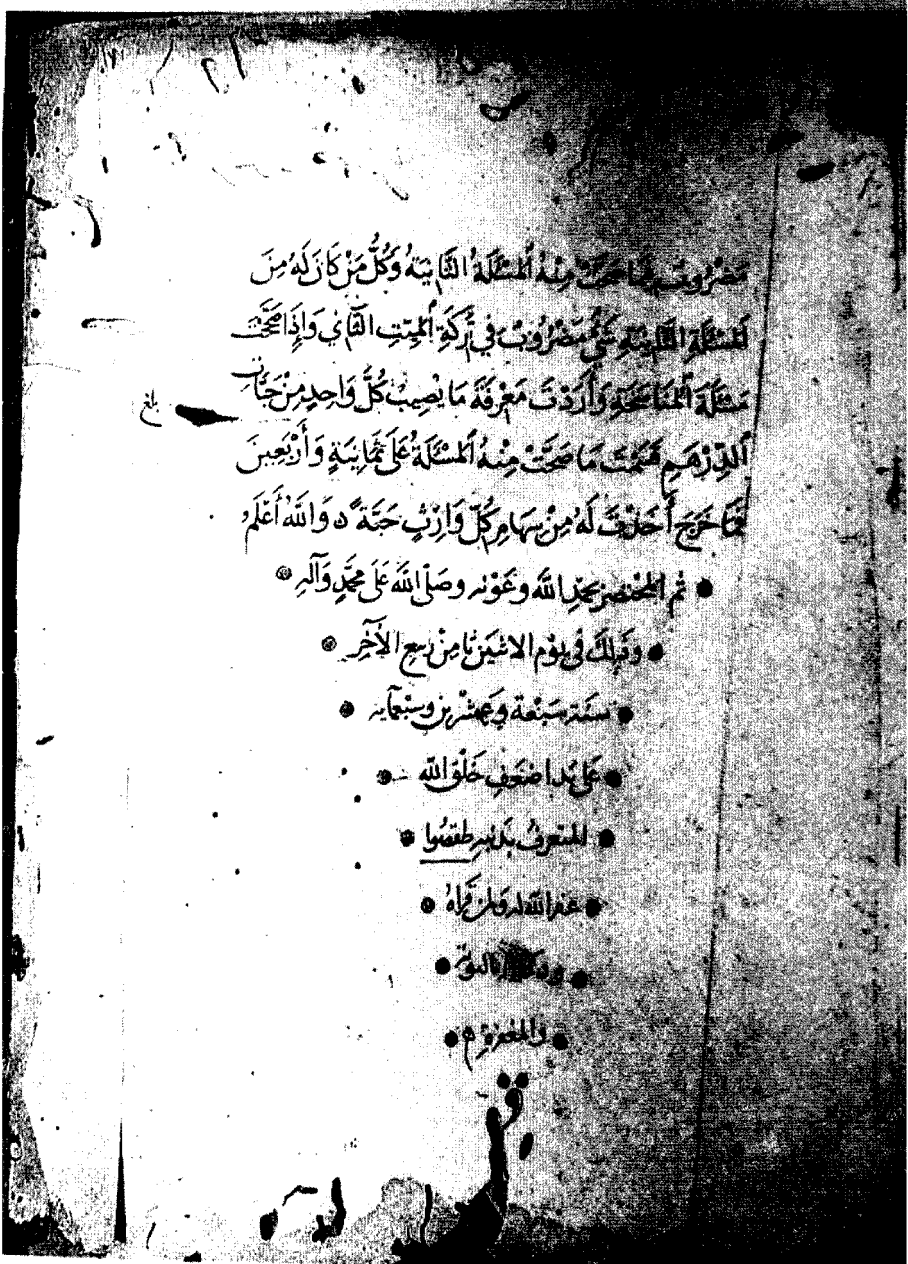 مَضْرُوبٌ فِيمَا صَحَّتْ مِنْهُ اَلْمَسْئَلَةُ الثَّانِيَةُ وَكُلُّ مَنْ كَانَ لَهُ مِنَ
اَلْمَسْئَلَةِ الثَّانِيَةِ شَيْءٌ مَضْرُوبٌ فِي تَرِكَةِ اَلْمَيِّتِ الثَّانِي وَإِذَا صَحَّحْتَ
مَسْئَلَةَ اَلْمُنَاسَخَةِ وَأَرَدْتَ مَعْرِفَةَ مَا يُصِيبُ كُلَّ وَاحِدٍ مِنْ حَبَّاتِ
اَلدِّرْهَمِ قَسَمْتَ مَا صَحَّتْ مِنْهُ اَلْمَسْئَلَةُ عَلَى ثَمَانِيَةٍ وَأَرْبَعِينَ
فَمَا خَرَجَ أَخَذْتَ لَهُ مِنْ سِهَامِ كُلِّ وَارِثٍ حَبَّةً ه وَاللهُ أَعْلَمُ
بلغ
تم المختصر بحمد الله وعونه وصَلّى الله عَلَى مُحَمَّدٍ وَآلهِ
وَذَلِكَ في يوْم الاثنين ثامن ربيع الآخر
سنة سَبْعة وعِشْرين وسبْعمآيه
عَلَى يَد اضعَفِ خَلْق الله
المتعرف
غفر الله له ولمن قراهُ
بالتوبة
والمغفرة